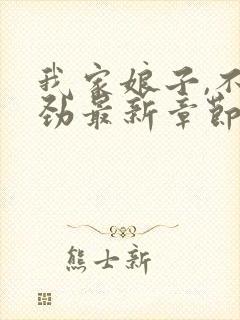 我家娘子,不
劲最新章节
熊士新